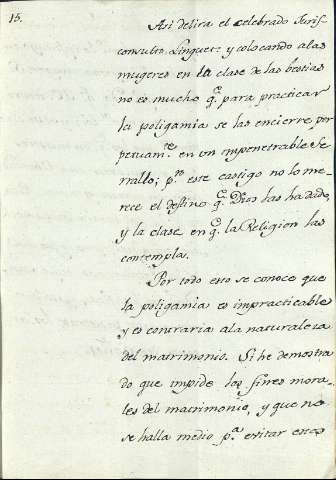 15.
Asi delira el celebrado Juris-
consulto Linguet: y colocando a las
mugeres en la clase de las bestias
no es mucho q.e para practicar
la poligamia se las encierre per
petuam.te en un impenetrable Se
rrallo; p.ro este castigo no lo me-
rece el destino q.e Dios las ha dado,
y la clase en q.e la Religion las
contempla.
Por todo esto se conoce que
la poligamia es impracticable
y es contraria a la naturaleza
del matrimonio. Si he demostra
do que impide los fines mora-
les del matrimonio, y que no
se halla medio p.a evitar estos